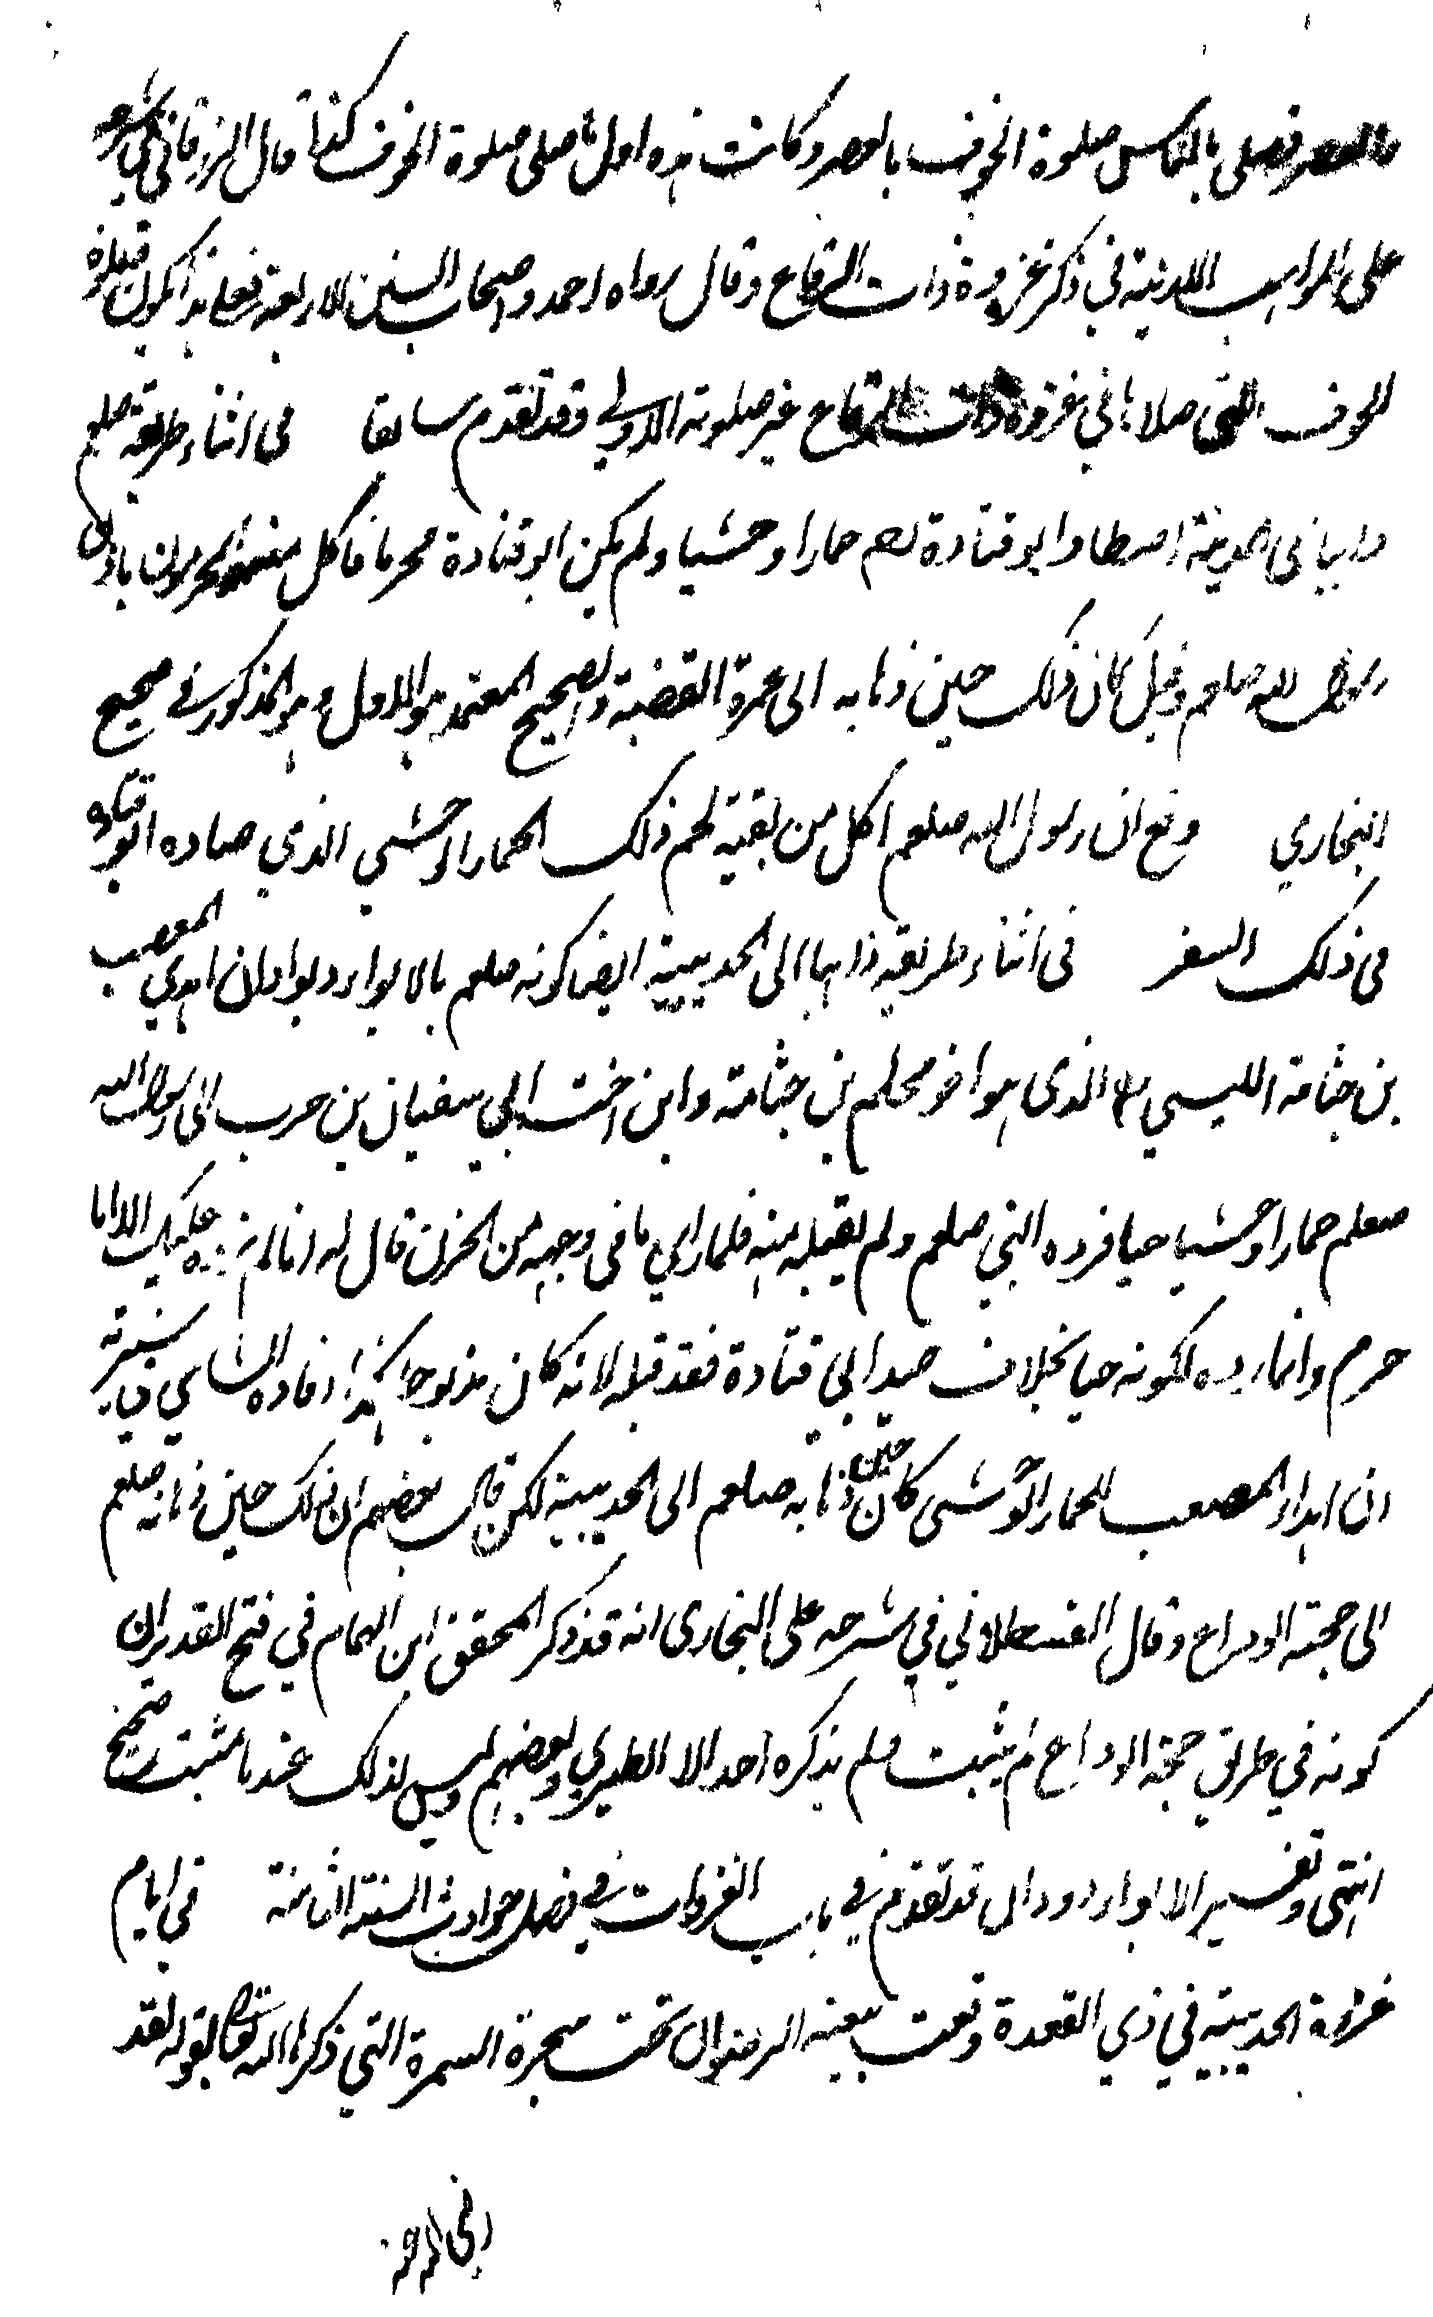 بالعصر فصلى بالناس صلوة الخوف بالعصر وكانت هذه اول ما صلى صلوة الخوف كذا قال الزرقاني في شرحه
على المواهب اللدنية في ذكر غزوة ذات الرقاع وقال رواه احمد واصحاب السنن الاربعة فعلى هذا يكون صلوة
الخوف التي صلاها في غزوة ذات الرقاع غير صلوته الاولى فقد تقدم سابقا في اثناء طريقه صلعم
ذاهبا في الحديبية اصطاد ابو قتادة لهم حمارا وحشيا ولم يكن ابو قتادة محرما فاكل منه المحرمون باذن
رسول الله صلعم وقيل كان ذلك حين ذهابه الى عمرة القضية والصحيح المعتمد هو الاول وهو المذكور في صحيح
البخاري وقع ان رسول الله صلعم اكل من بقية لحم ذلك الحمار الوحشي الذي صاده ابو قتادة
في ذلك السفر في اثناء طريقه ذاهبا الى الحديبية ايضا كونه صلعم بالابواء وبوادان اهدى المصعب
بن جثامة الليثي الذي هو اخو محلم بن جثامة وابن اخت ابي سفيان بن حرب الى رسول الله
صلعم حمارا وحشيا حيا فرده النبي صلعم ولم يقبله منه فلما راى ما في وجهه من الحزن قال له انا لم نرده عليك الا انا
حرم وانما رده لكونه حيا بخلاف صيد ابي قتادة فقد قبله لانه كان مذبوحا هكذا افاده الشامي في سيرته
ان اهداء المصعب للحمار الوحشي كان حين ذهابه صلعم الى الحديبية لكن قال بعضهم ان ذلك حين ذهابه صلعم
الى حجة الوداع وقال القسطلاني في شرحه على البخاري انه قد ذكر المحقق ابن الهمام في فتح القدير ان
كونه في طريق حجة الوداع لم يثبت ولم يذكره احد الا الطبري وبعضهم وليس لذلك عندنا مثبت صحيح
انتهى وتفسير الابواء وودان قد تقدم في باب الغزوات في فصل حوادث السنة الثامنة في ايام
غزوة الحديبية في ذي القعدة وقعت بيعة الرضوان تحت شجرة السمرة التي ذكرها الله تعالى بقوله لقد